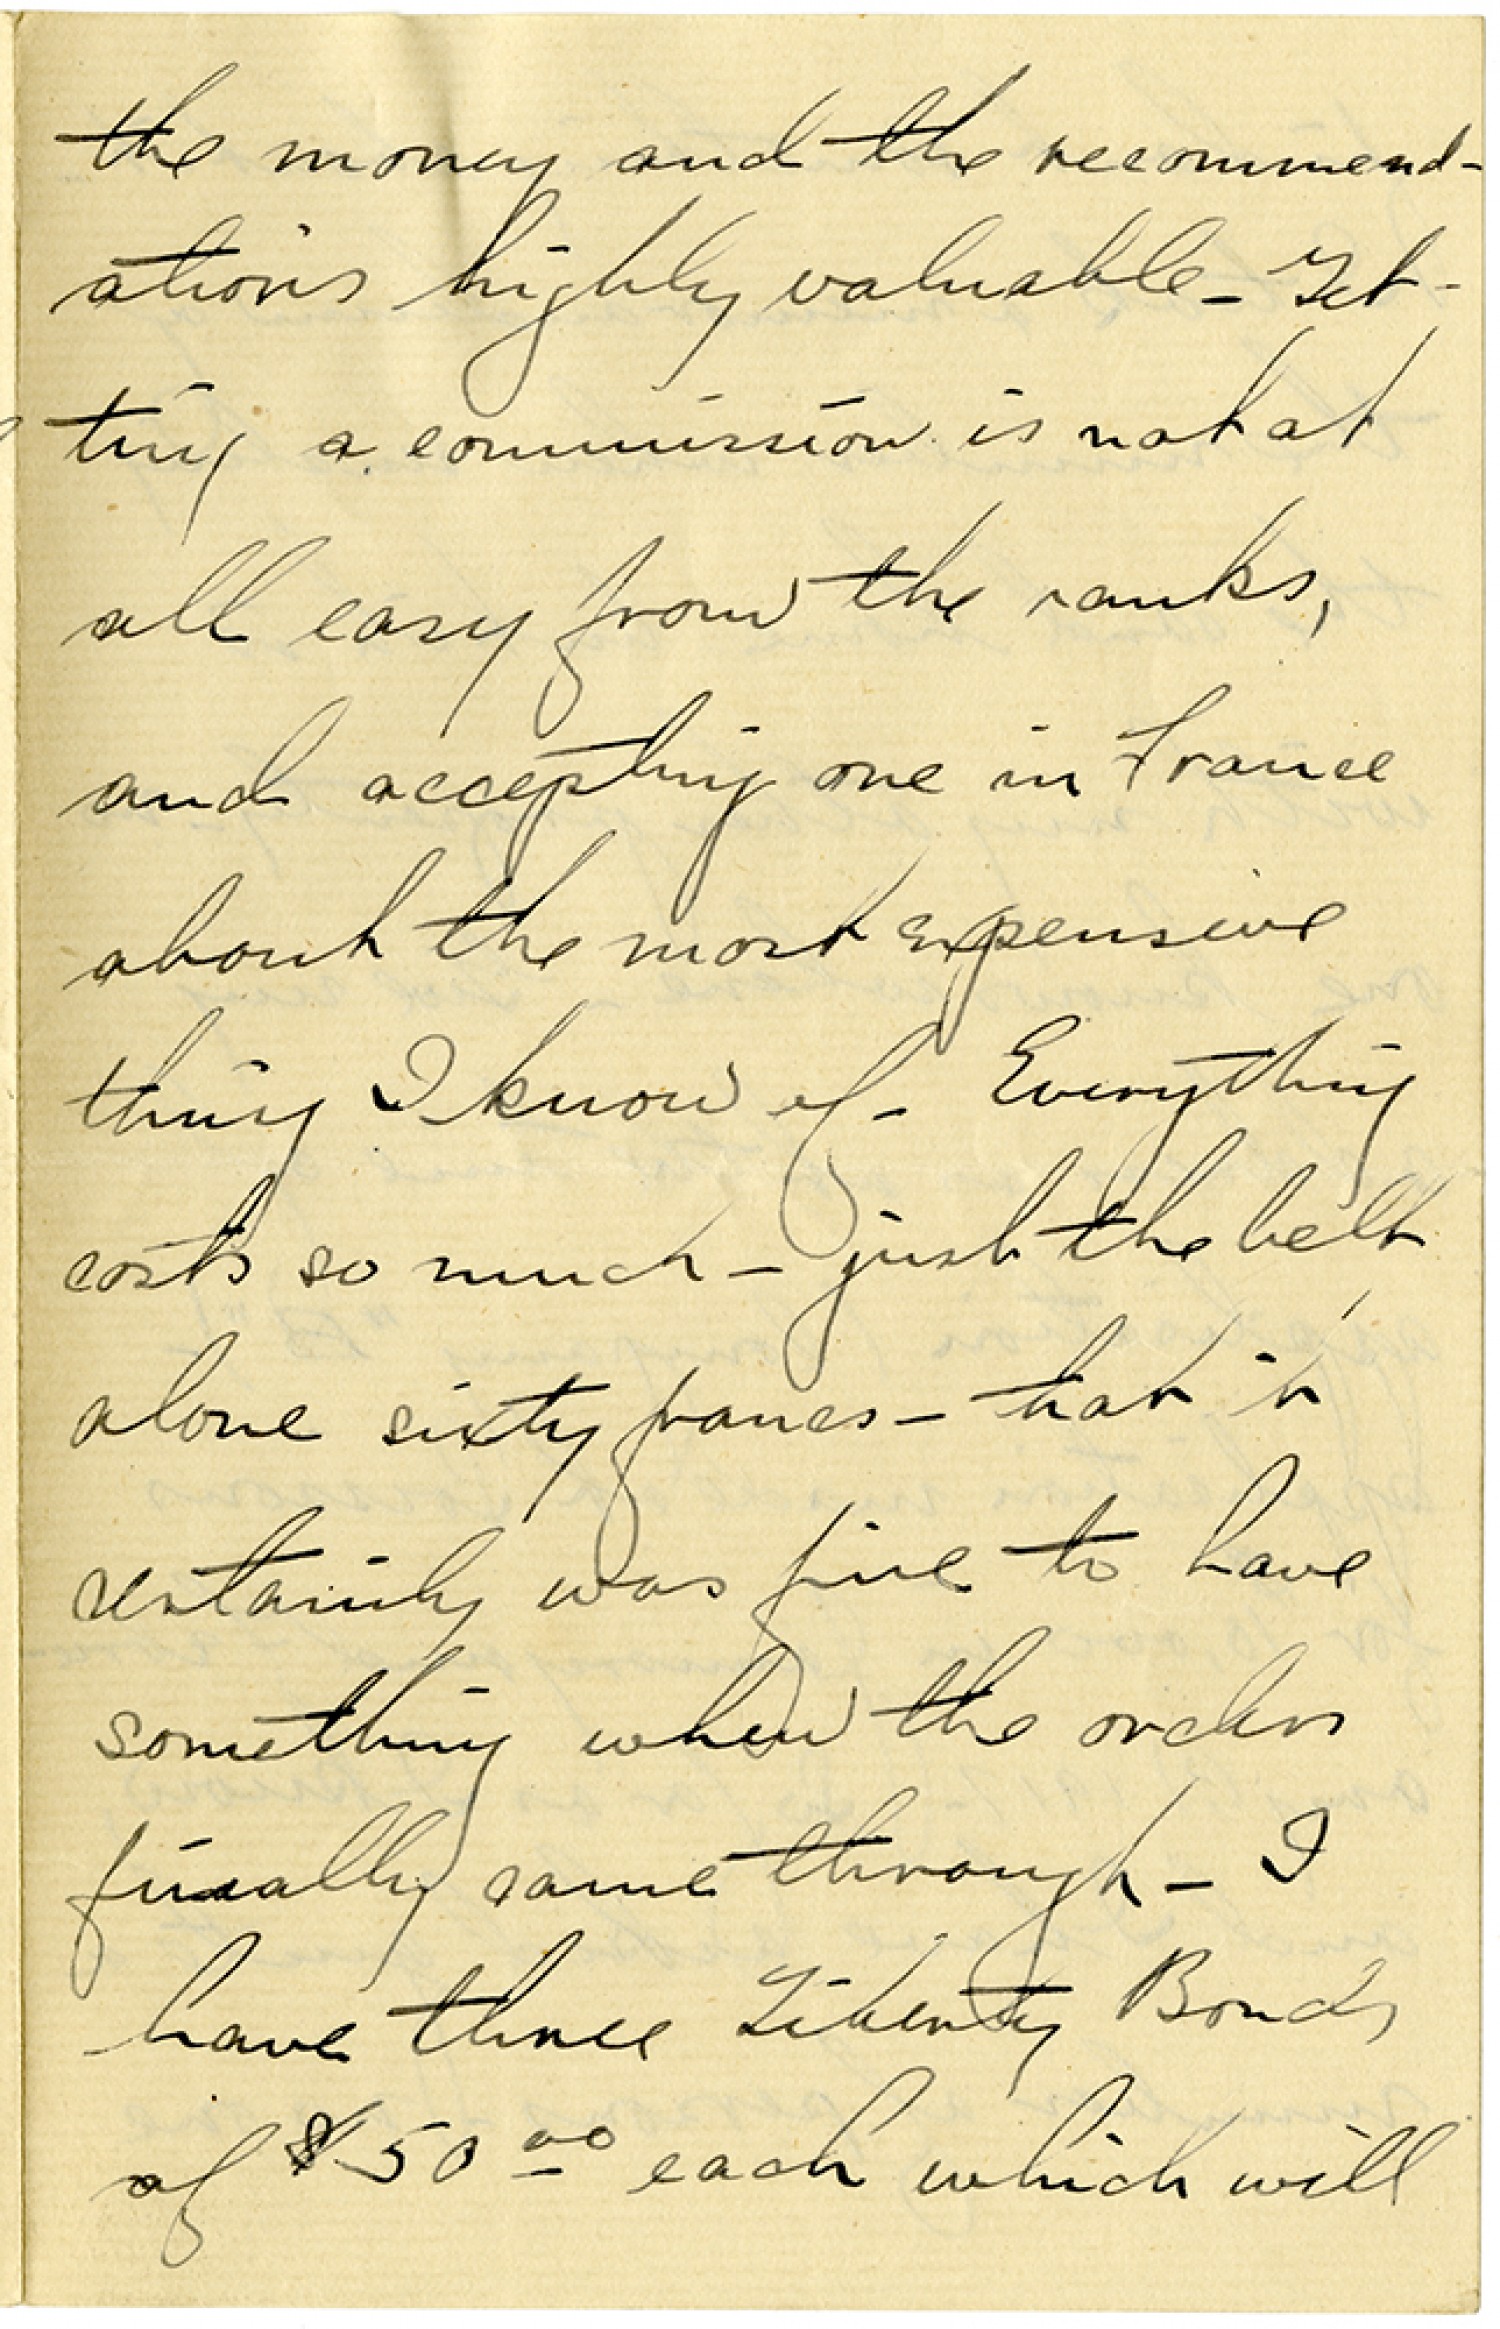 the money and the recommend-
ations highly valuable - Get-
ting a commission is not at
all easy from the ranks,
and accepting one in France
about the most expensive
thing I know of - Everything
costs so much - just the belt
alone sixty francs - that it
certainly was fine to have
something when the orders
finally came through - I
have three Liberty Bonds
of $50.00 each which will